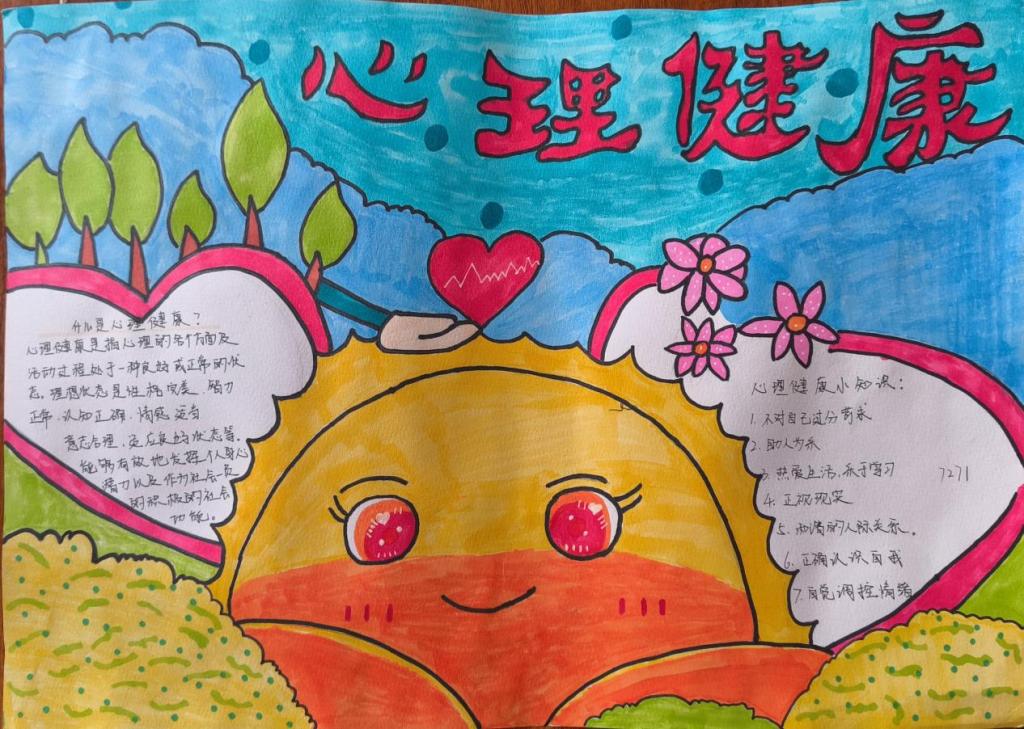 心理健康
什么是心理健康？
心理健康是指心理的各个方面及
活动过程处于一种良好或正常的状
态。理想状态是性格完美、智力
正常、认知正确、情感适当
意志合理、反应良好状态等。
能够有效地发挥个人身心
潜力以及作为社会一员
的积极的社会
功能。
心理健康小知识：
1. 不对自己过分苛求
2. 助人为乐
3. 热爱生活，乐于学习
4. 正视现实
5. 和谐的人际关系。
6. 正确认识自我
7. 自觉调控情绪
7271